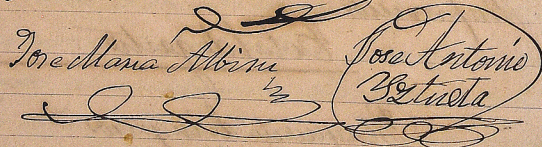 Jose Maria Albisu
Jose Antonio
Yztueta